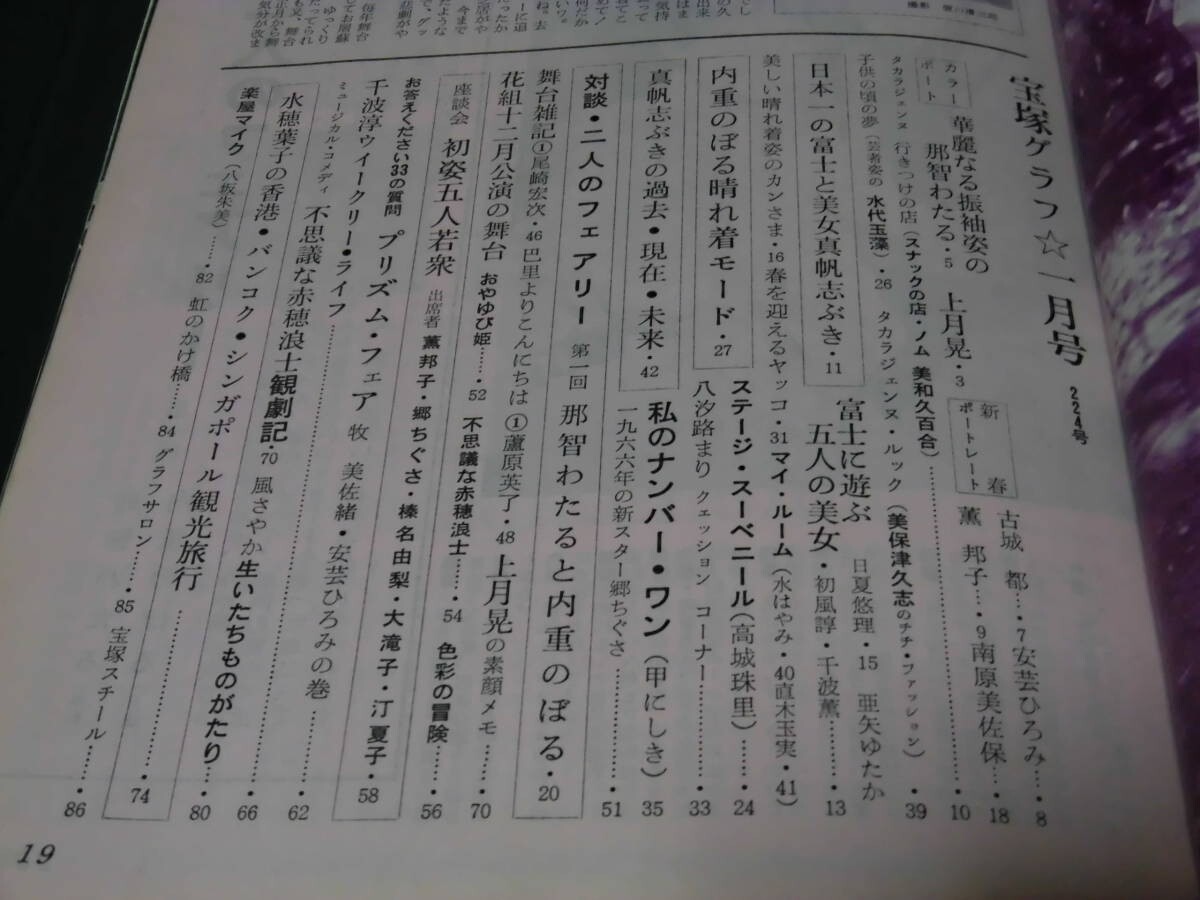 宝塚グラフ☆一月号 224号
カラーポート
華麗なる振袖姿の
那智わたる・5 上月晃・3
新春ポートレート
古城都…・7 安芸ひろみ…・8
薫邦子…・9 南原美佐保…18
タカラジェンヌ 行きつけの店(スナックの店・ノム 美和久百合)………10
子供の頃の夢(芸者姿の 水代玉藻)・26 タカラジェンヌ・ルック(美保津久志のチチ・ファッション)……39
日本一の富士と美女真帆志ぶき・11
富士に遊ぶ
五人の美女
日夏悠理・15 亜矢ゆたか
・初風諄・千波薫……13
美しい晴れ着姿のカンさま・16 春を迎えるヤッコ・31 マイ・ルーム(水はやみ・40 直木玉実・41)
内重のぼる晴れ着モード・27
ステージ・スーベニール(高城珠里)……24
八汐路まり クェッション コーナー………33
真帆志ぶきの過去・現在・未来・42
私のナンバー・ワン(甲にしき)35
一九六六年の新スター郷ちぐさ………51
対談・二人のフェアリー 第一回 那智わたると内重のぼる・20
舞台雑記①尾崎宏次・46 巴里よりこんにちは①蘆原英了・48 上月晃の素顔メモ……70
花組十二月公演の舞台 おやゆび姫……52 不思議な赤穂浪士……54 色彩の冒険……56
座談会 初姿五人若衆 出席者 薫邦子・郷ちぐさ・榛名由梨・大滝子・汀夏子・58
お答えください33の質問 プリズム・フェア 牧美佐緒・安芸ひろみの巻………62
千波淳ウイークリー・ライフ………66
ミュージカル・コメディ 不思議な赤穂浪士観劇記・70 風さやか生いたちものがたり…80
水穂葉子の香港・バンコク・シンガポール観光旅行………・74
楽屋マイク(八坂朱美)……82 虹のかけ橋……84 グラフサロン……85 宝塚スチール……86
19